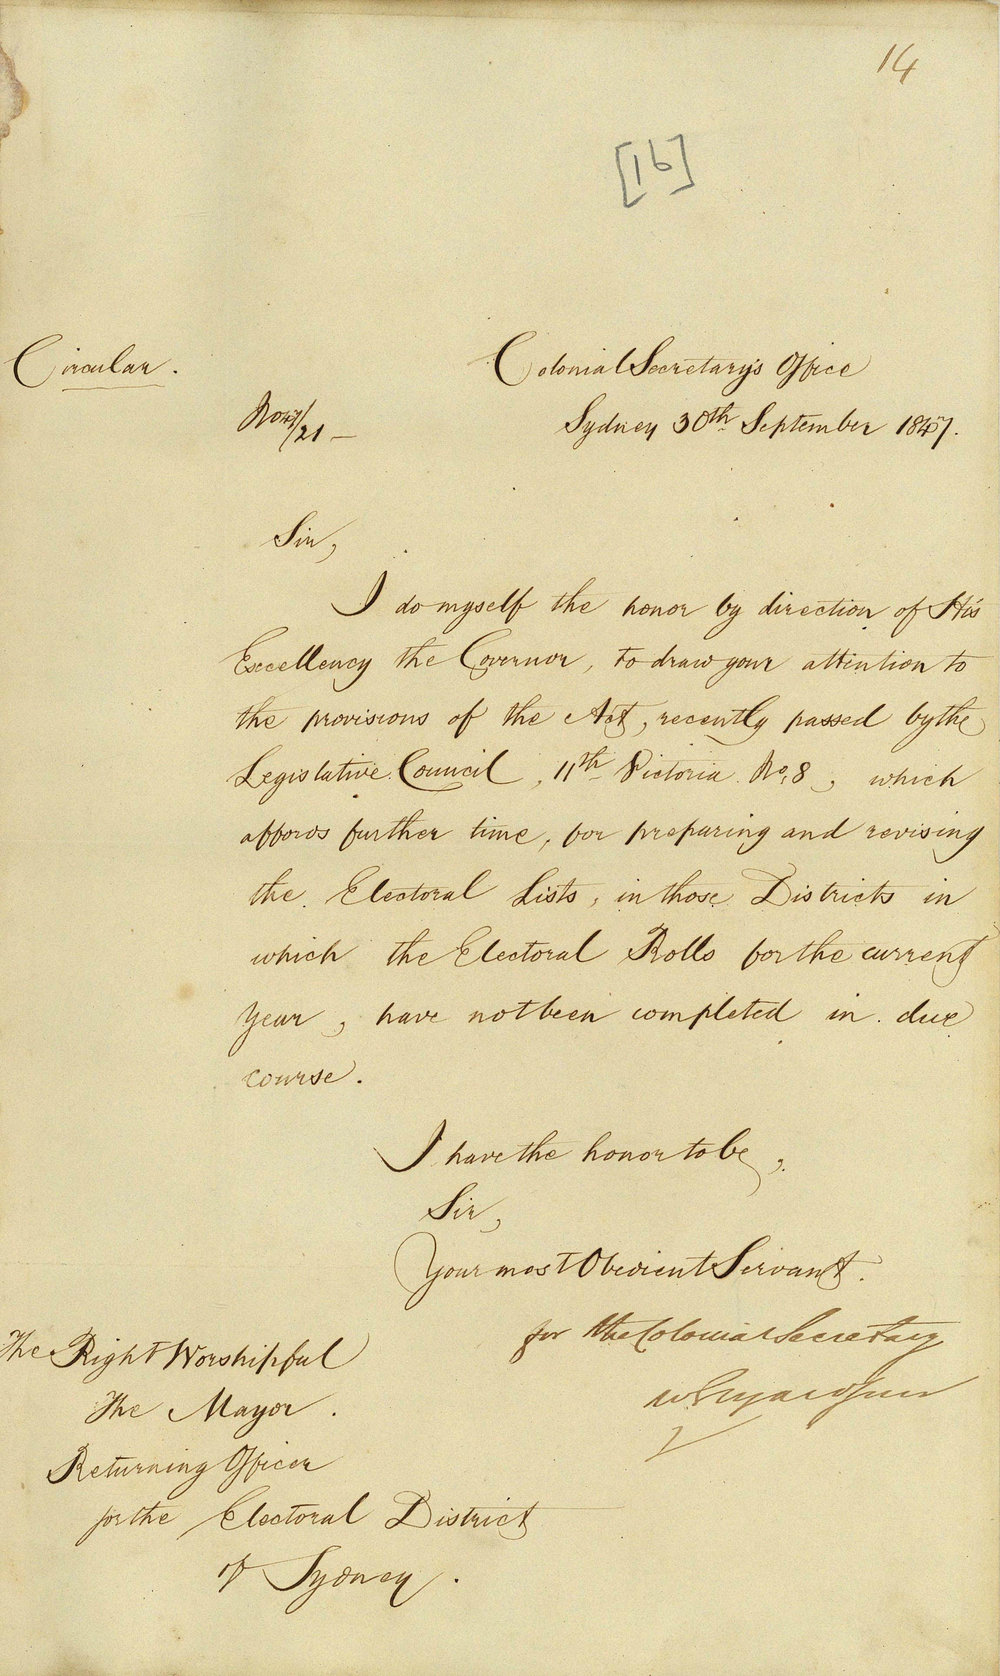 14
[16]
Circular.
Colonial Secretary's Office
No 47/21 —
Sydney 30th September 1847.
Sir,
I do myself the honor by direction of His
Excellency the Governor, to draw your attention to
the provisions of the Act, recently passed by the
Legislative Council, 11th Victoria No. 8, which
affords further time, for preparing and revising
the Electoral Lists, in those Districts in
which the Electoral Rolls for the current
year, have not been completed in due
course.
I have the honor to be,
Sir,
Your most Obedient Servant.
for the Colonial Secretary
The Right Worshipful
The Mayor.
Returning Officer
for the Electoral District
of Sydney.